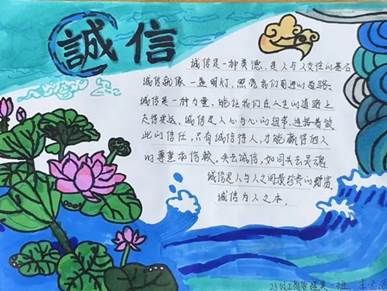 誠信
诚信是一种美德,是人与人交往的基石
诚信就像一盏明灯,照亮我们前进的道路。
诚信是一种力量,能让我们在人生的道路上
走得更远。诚信是人心与心的纽带,连接着彼
此的信任,只有诚信待人,才能赢得他人
的尊重和信赖,失去诚信,如同失去灵魂
诚信是人与人之间最珍贵的财富
诚信为人之本.
23级工商管理
班